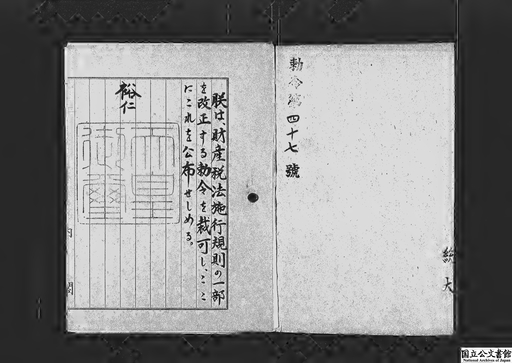 勅令第四十七號
総大
朕は、財産税法施行規則の一部
を改正する勅令を裁可し、ここ
にこれを公布せしめる。
裕仁
天皇御璽
内閣
国立公文書館
National Archives of Japan